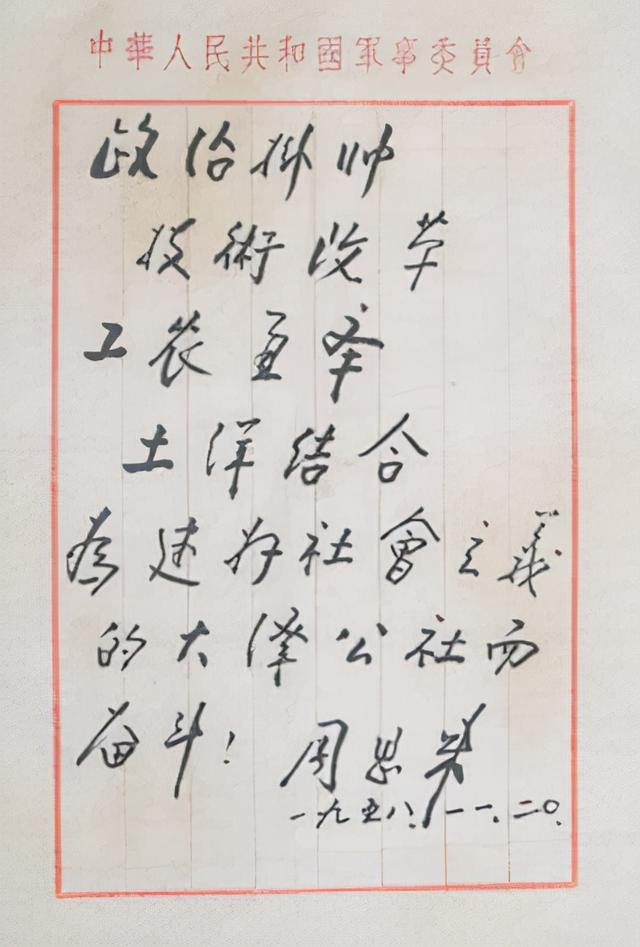 中華人民共和國軍事委員會
政治掛帅
技術改革
工农並举
土洋結合
为建好社會主義
的大澤公社而
奮斗！ 周恩来
一九五八、一一、二〇.